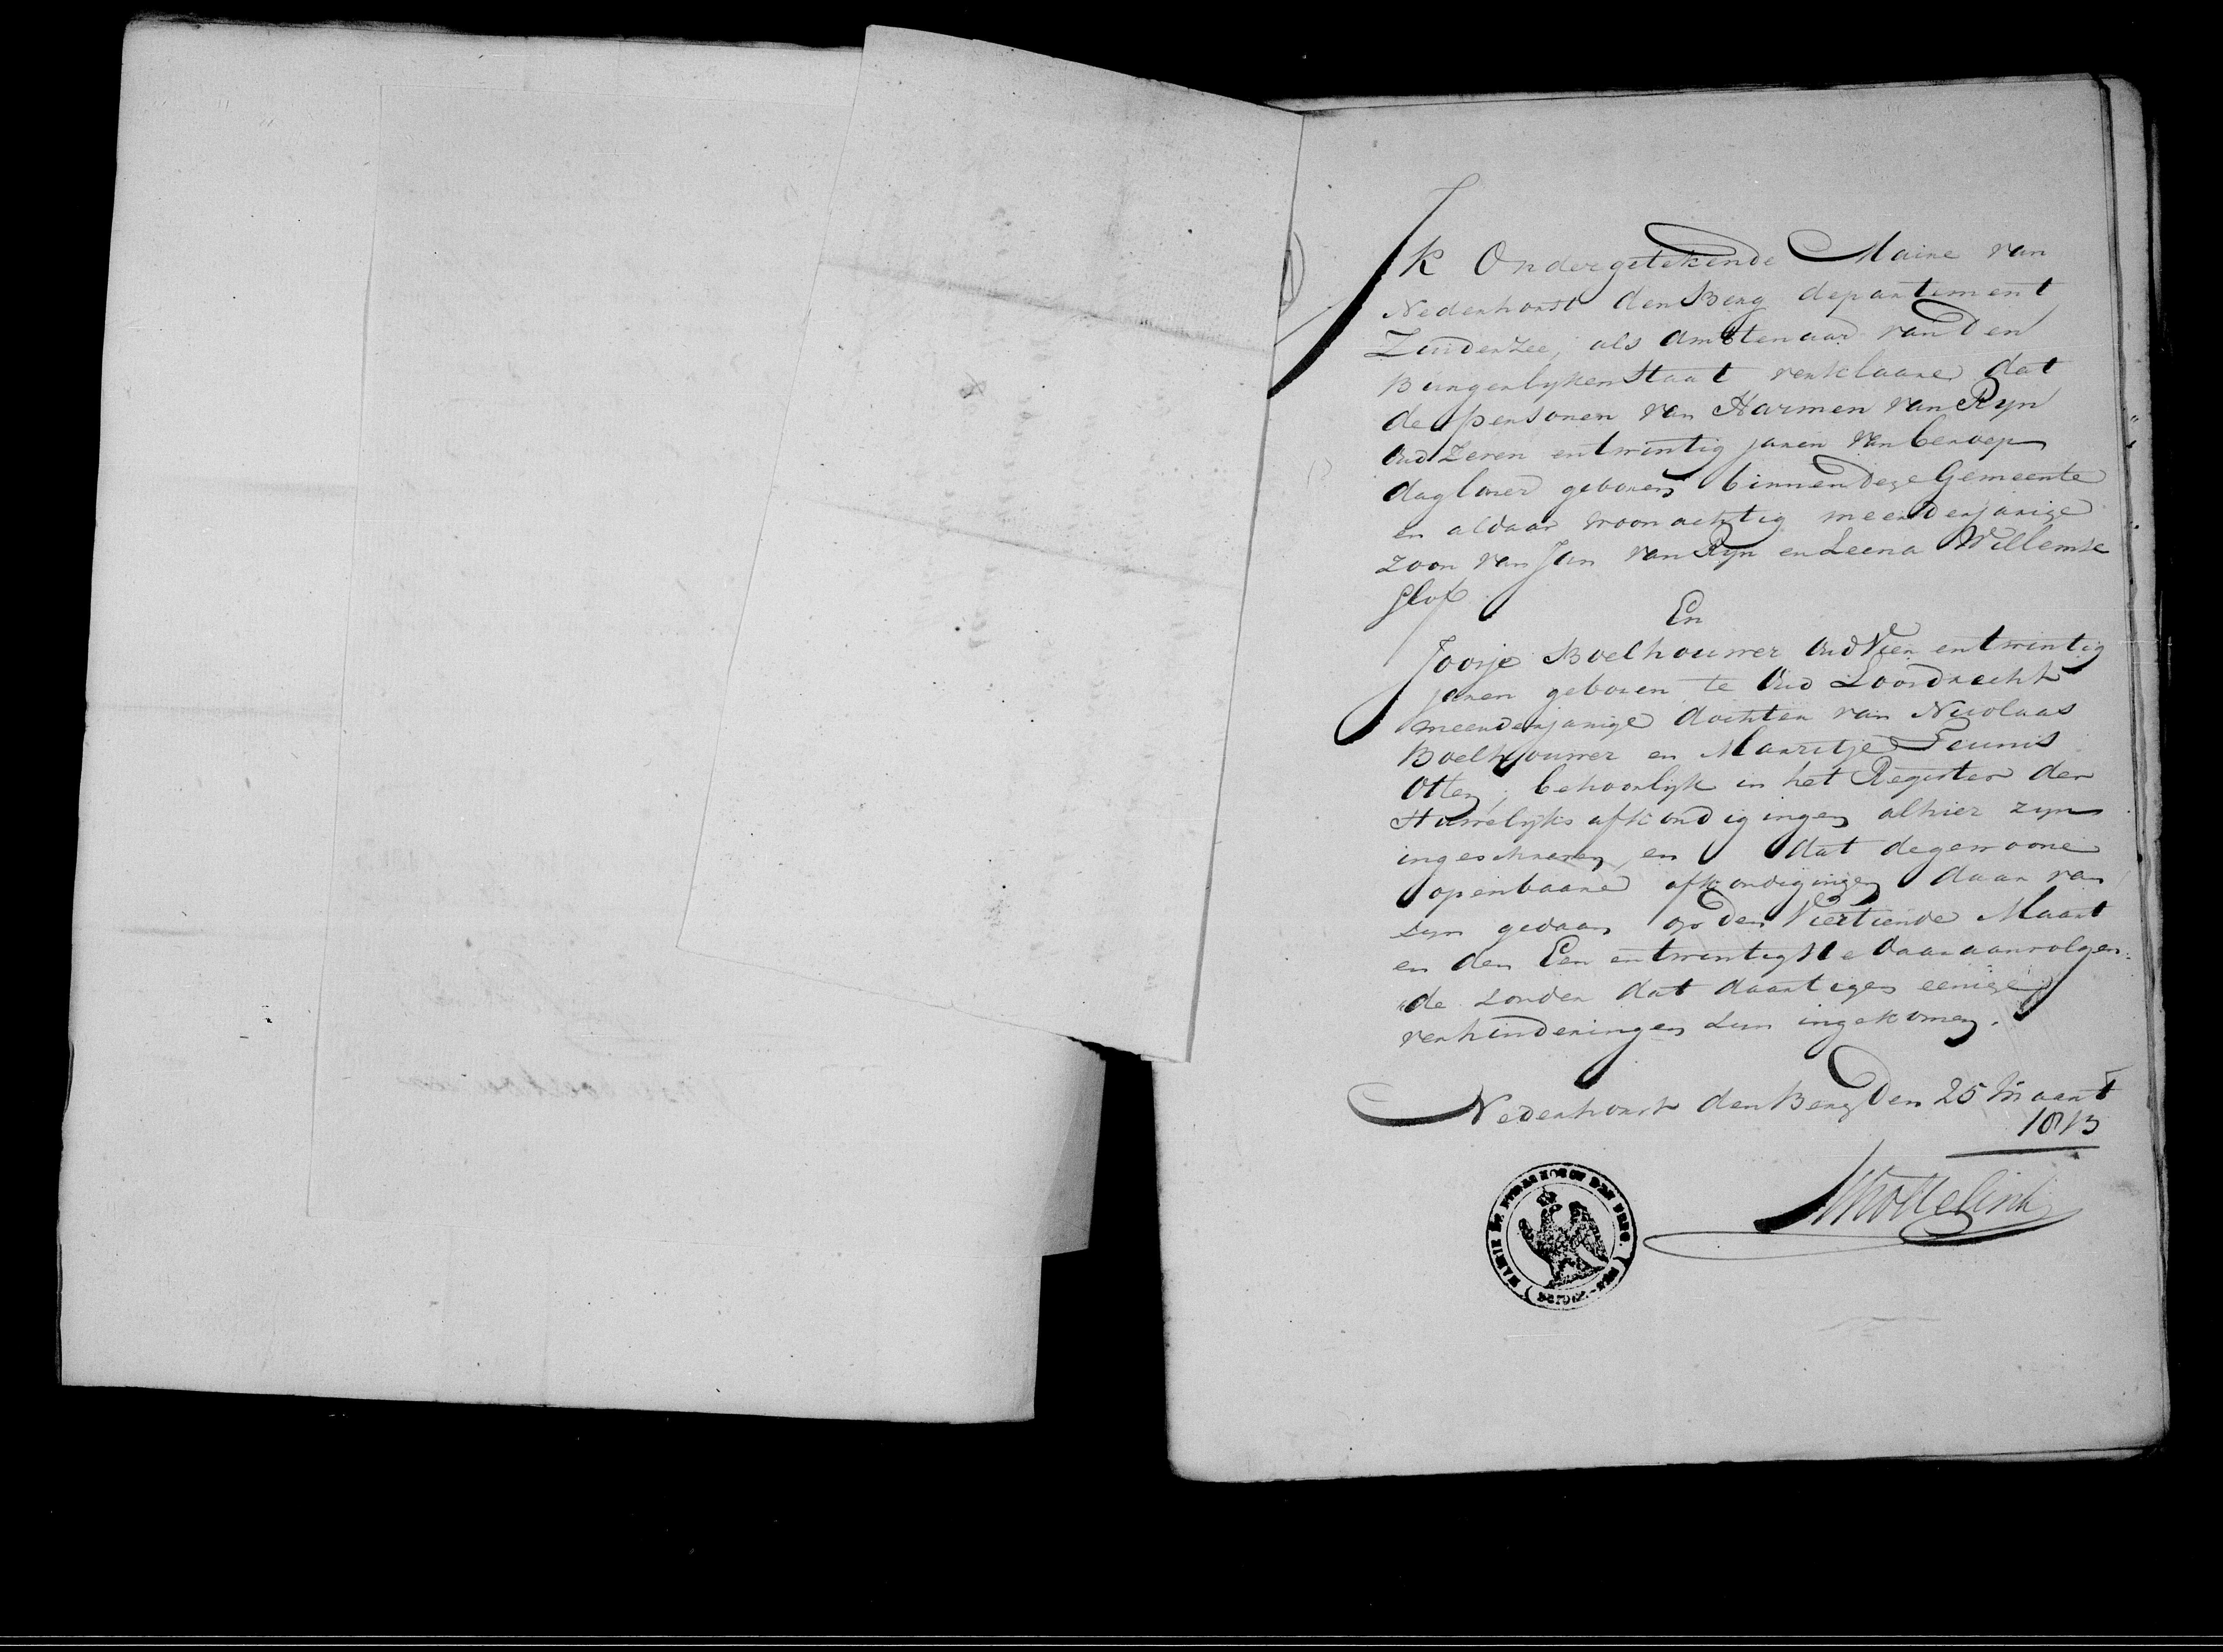 Ik Ondergetekende Maire van
Nederhorst den Berg departement
Zuiderzee, als Amtenaar van den
Burgerlyken Staat verklaare dat
de personen van Harmen van Ryn
Oud Zeven en twintig jaren van beroep
dagloner geboren binnen deze Gemeente
en aldaar woonachtig meerderjarige
zoon van Jan van Ryn en Leena Willemse
Slof
En
Joosje Boelhouwer Oud Vier en twintig
jaren geboren te Oud Loosdrecht
meerderjarige dochter van Nicolaas
Boelhouwer en Marritje Teunis
Otten, behoorlyk in het Register der
Huwelyks afkondigingen alhier zyn
ingeschreven, en dat de gewoone
openbaare afkondigingen daar van
zyn gedaan op den Viertiende Maart
en den Een en twintigste daaraanvolgen=
=de zonder dat daartegen eenige
verhinderingen zyn ingekomen.
Nederhorst den Berg den 25 Maart
1813
MAIRIE DE NEDERHORST DEN BERG